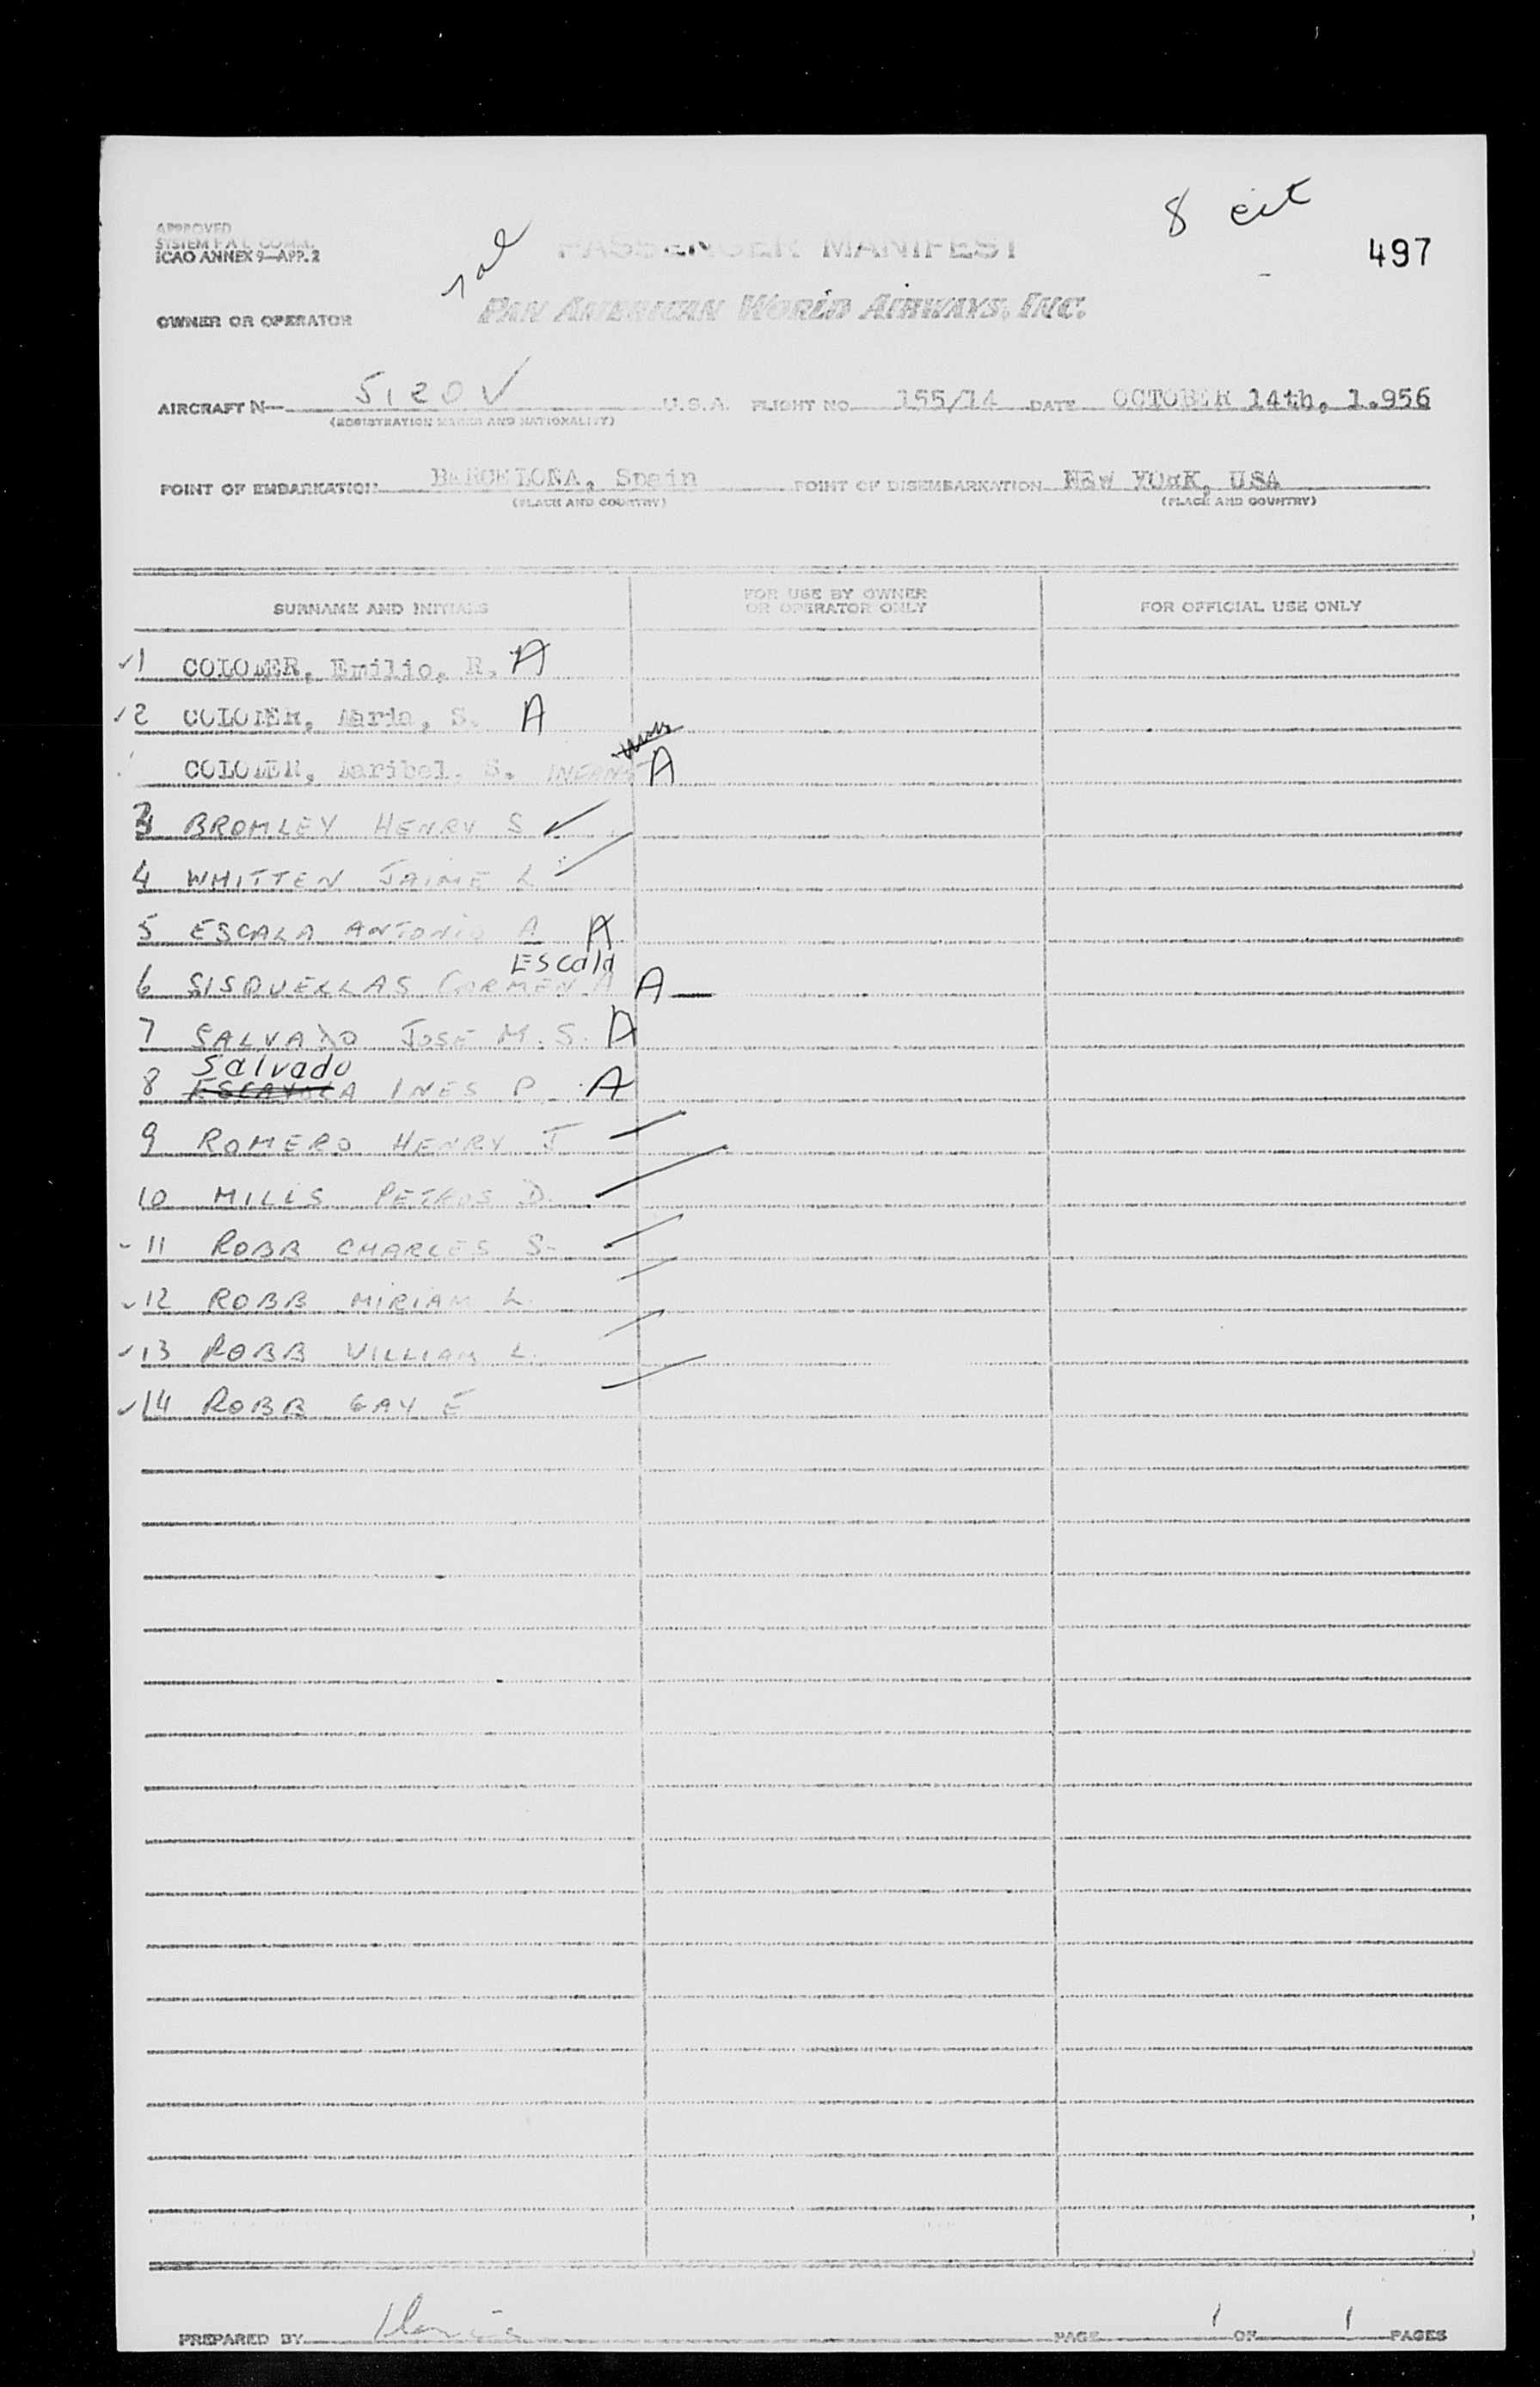 8 cit
APPROVED
SYSTEM F A L COMM.
ICAO ANNEX 9—APP. 2
PASSENGER MANIFEST
497
OWNER OR OPERATOR
PAN AMERICAN WORLD AIRWAYS, INC.
AIRCRAFT N— 5120 ✓ U.S.A. FLIGHT NO. 155/14 DATE OCTOBER 14th, 1.956
(REGISTRATION MARKS AND NATIONALITY)
POINT OF EMBARKATION BARCELONA, Spain POINT OF DISEMBARKATION NEW YORK, USA
(PLACE AND COUNTRY) (PLACE AND COUNTRY)
SURNAME AND INITIALS FOR USE BY OWNER OR OPERATOR ONLY FOR OFFICIAL USE ONLY
✓1 COLOMER, Emilio, R. A
✓2 COLOMER, Maria, S. A
COLOMER, Maribel, S. INFANT A
3 BROMLEY HENRY S ✓
4 WHITTEN JAIME L
5 ESCALA ANTONIO A A
Escala
6 SISQUELLAS CARMEN A A —
7 SALVADO JOSE M. S. A
Salvado
8 INES P. A
9 ROMERO HENRY J
10 MILLS D.
11 ROBB CHARLES S-
✓12 ROBB MIRIAM L.
✓13 ROBB WILLIAM L.
✓14 ROBB GAY E
PREPARED BY PAGE 1 OF 1 PAGES